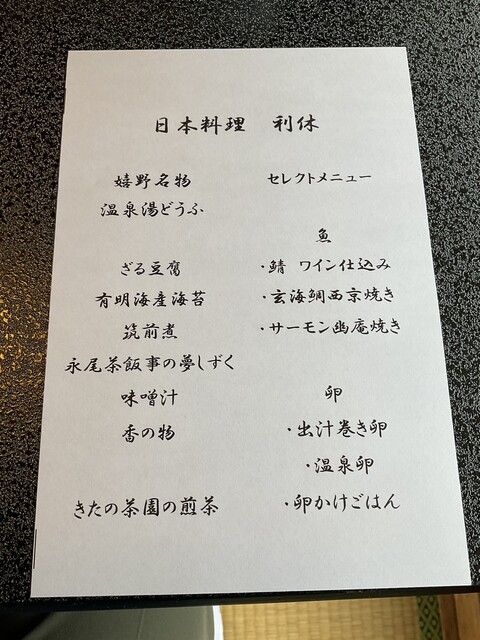 日本料理　利休
嬉野名物
温泉湯どうふ
ざる豆腐
有明海産海苔
筑前煮
永尾茶飯事の夢しずく
味噌汁
香の物
きたの茶園の煎茶
セレクトメニュー
魚
・鯖 ワイン仕込み
・玄海鯛西京焼き
・サーモン幽庵焼き
卵
・出汁巻き卵
・温泉卵
・卵かけごはん